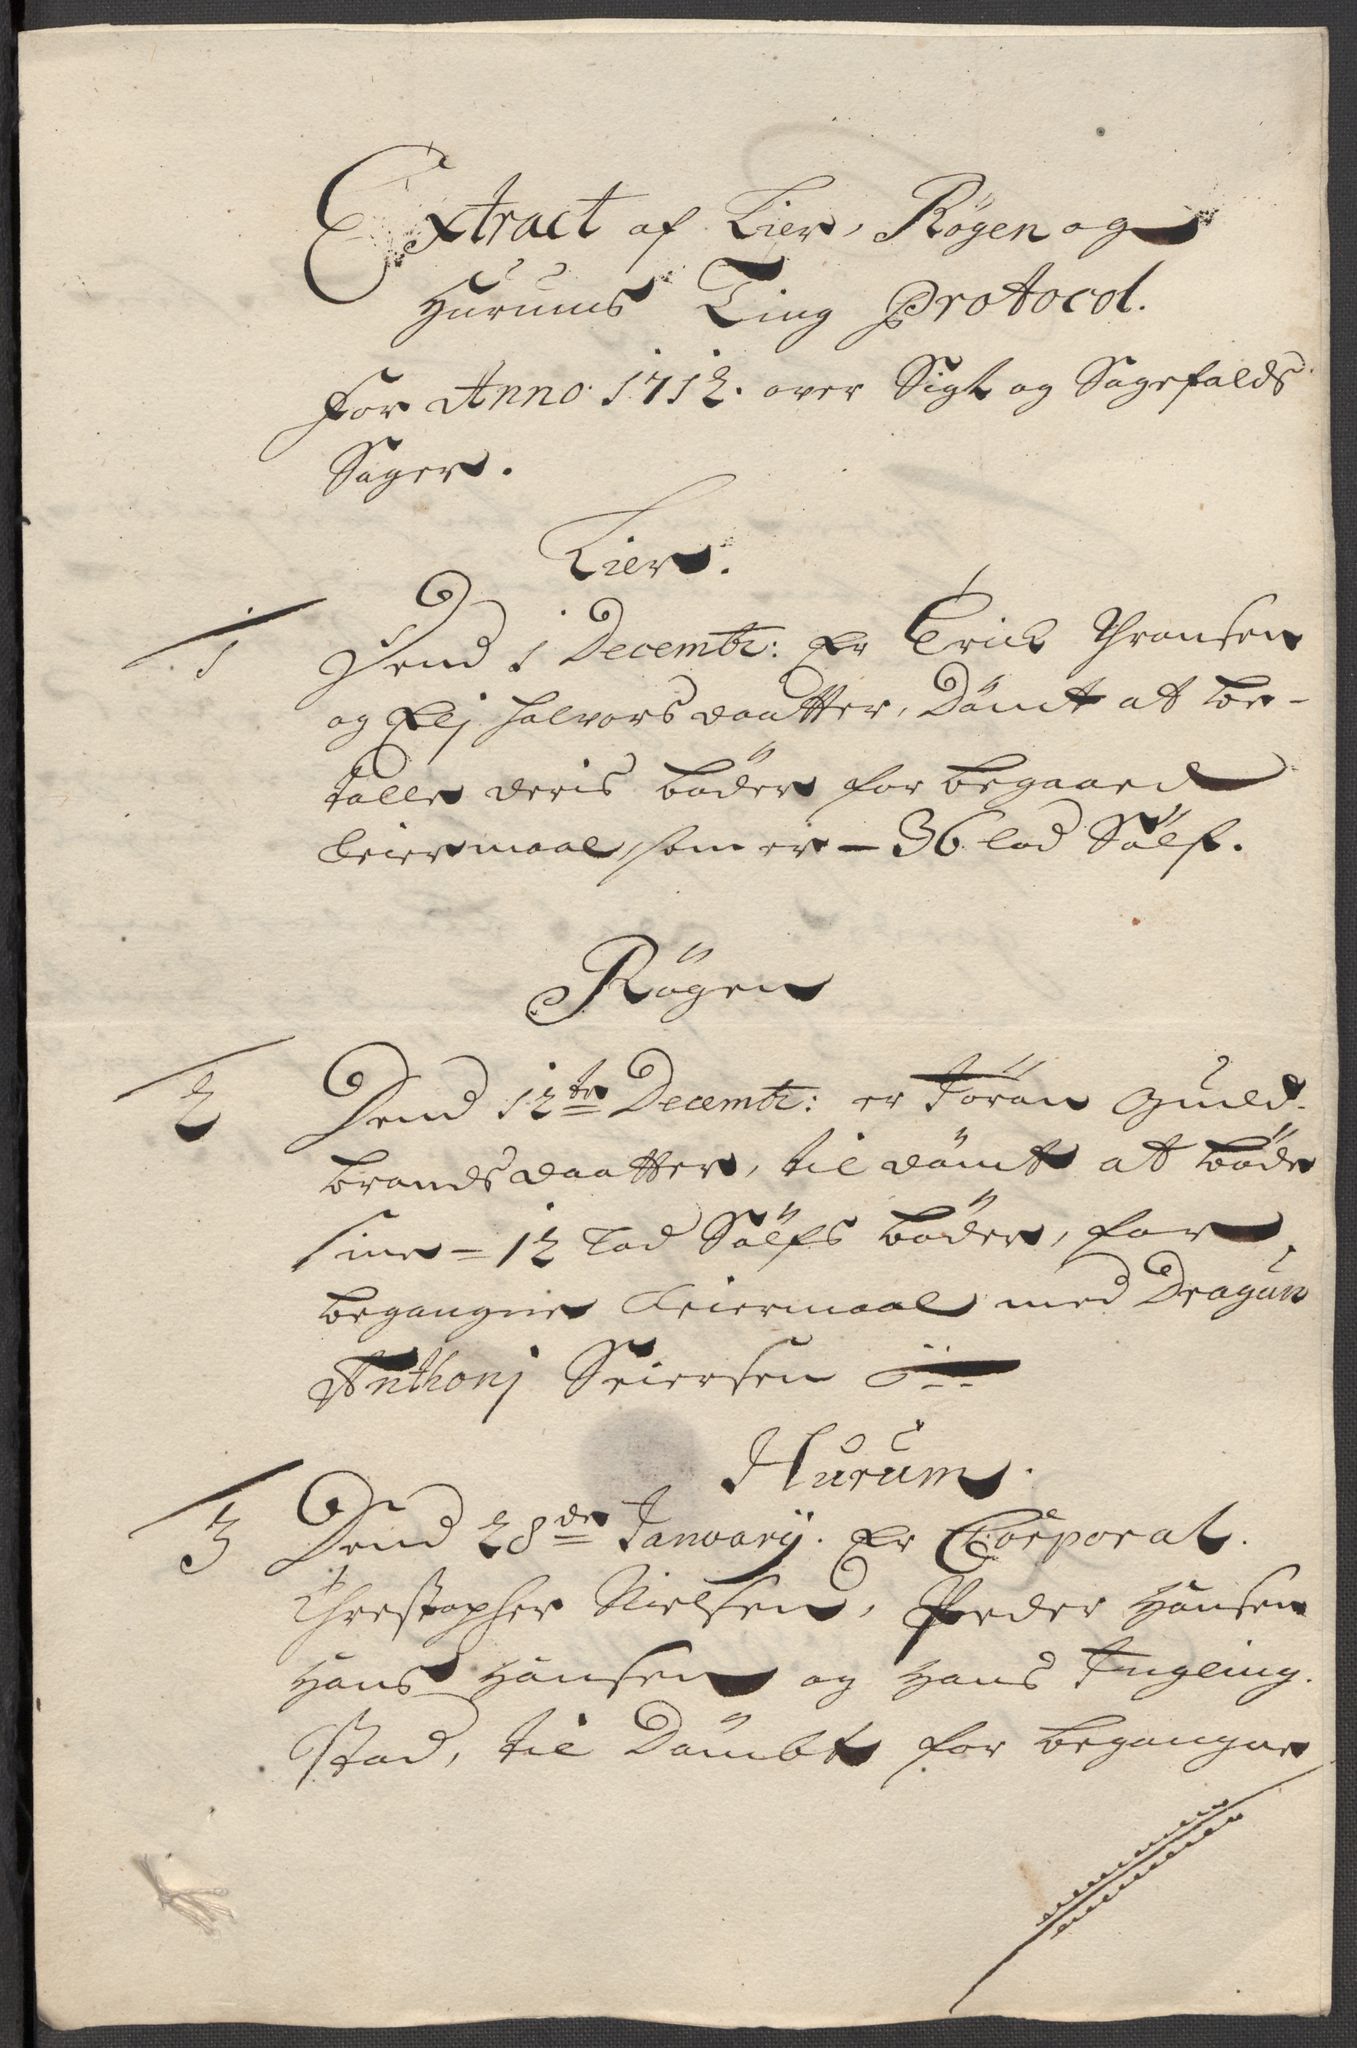 Extract af Lier, Røgen og
Hurums Ting Protocol.
For Anno 1712. over Sigt og Sagefalds
Sager.
Lier.
1 Dend 1 Decembr: Er Erick Thronsen
og Elj Halvorsdaatter, Dømt at be-
talle deris bøder for begaaed
Leiermaal, som er - 36 lod Sølf.
Røgen
2 Dend 12te Decembr: er Jörån Guld-
brandsdaatter, til dømt at bøde
sine - 12 Lod Sølfs bøder, for
begangne Leiermaal med Dragun
Anthonj Seiersen
Hurum.
3 Dend 28de Janvarij. Er Corporal.
Threstopher Nielsen, Peder Hansen
Hans Hansen og Hans Jngeling-
stad, til Dømbt for begangne